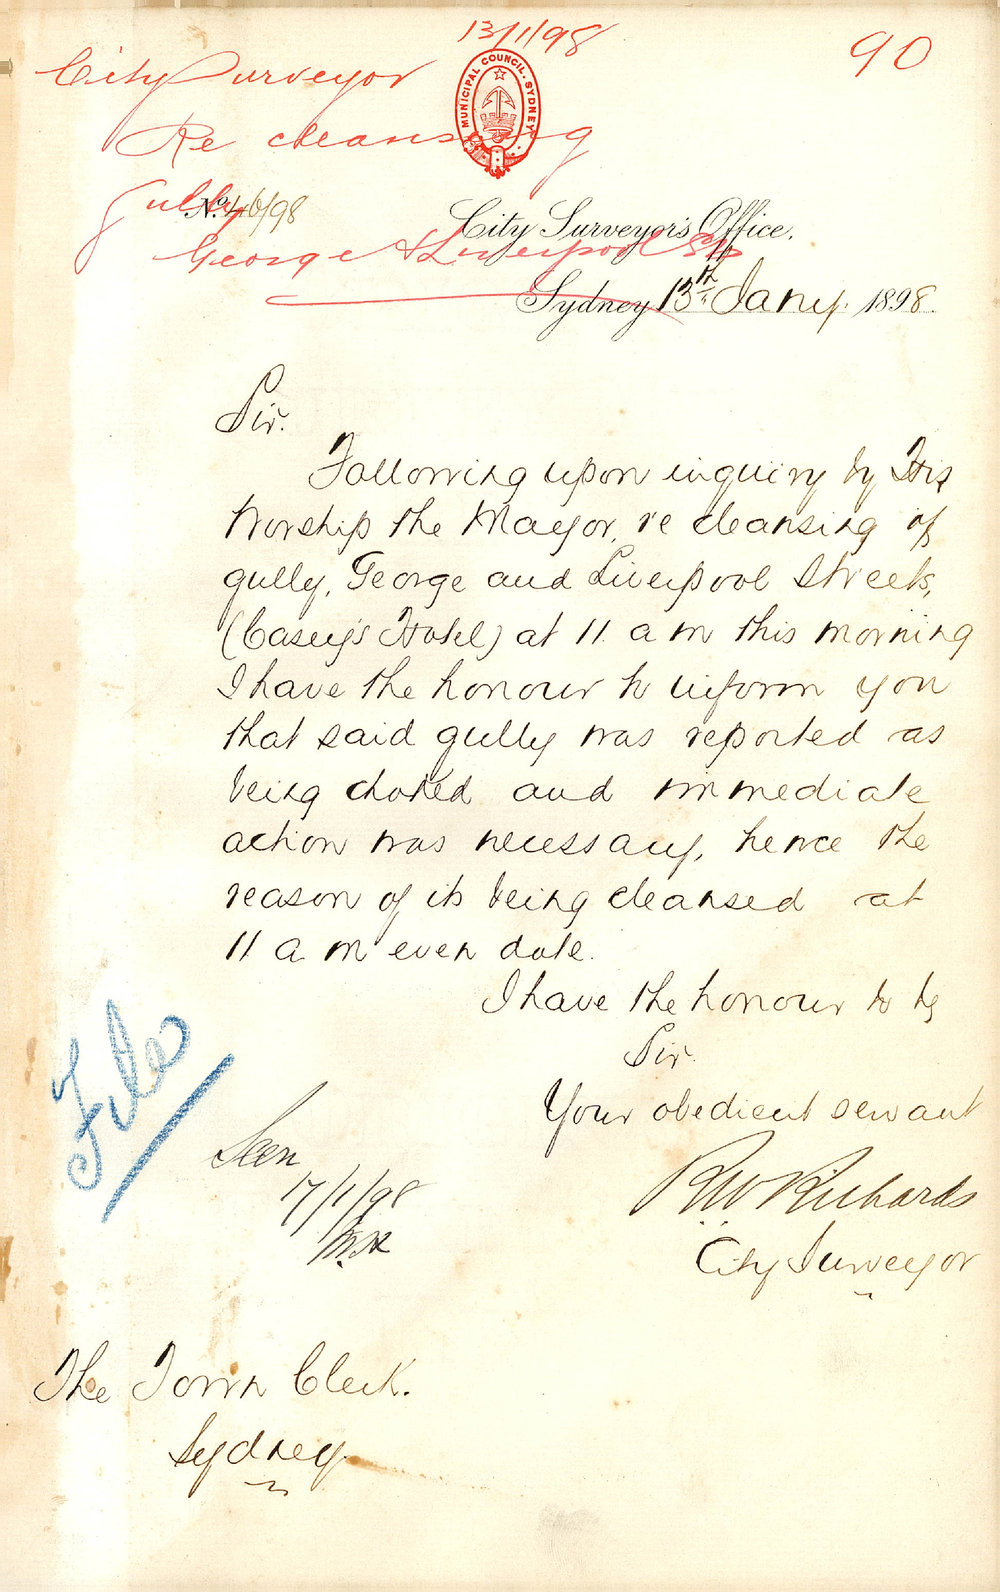 13/1/98
90
City Surveyor
Re cleansing
gully
George & Liverpool Sts
MUNICIPAL COUNCIL. SYDNEY.
No. 46/98
City Surveyor's Office.
Sydney 13th Jany. 1898.
Sir.
Following upon inquiry by His
Worship the Mayor, re cleansing of
gully, George and Liverpool Streets,
(Casey's Hotel) at 11 a m this morning
I have the honour to inform you
that said gully was reported as
being choked and immediate
action was necessary, hence the
reason of its being cleansed at
11 a m even date.
I have the honour to be
Sir.
Your obedient servant
R W Richards
City Surveyor
File
Seen
17/1/98
The Town Clerk.
Sydney